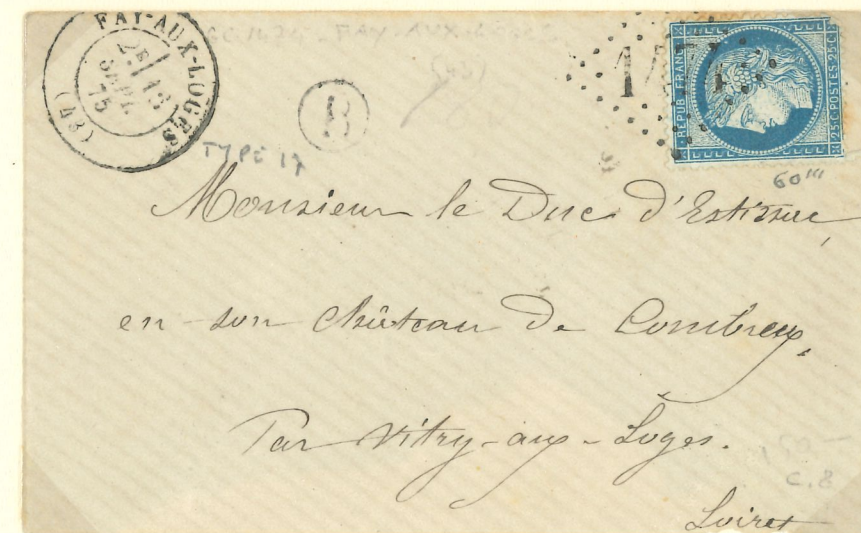 FAY-AUX-LOGES
2E / 13
SEPT.
75
(43)
GC 1474 - FAY-AUX-LOGES
(43)
B
TYPE 17
REPUB. FRANC.
25 C. POSTES. 25 C.
60 III
Monsieur le Duc d'Estissac,
en son Château de Combreux,
Par Vitry-aux-Loges.
Loiret
C. 8